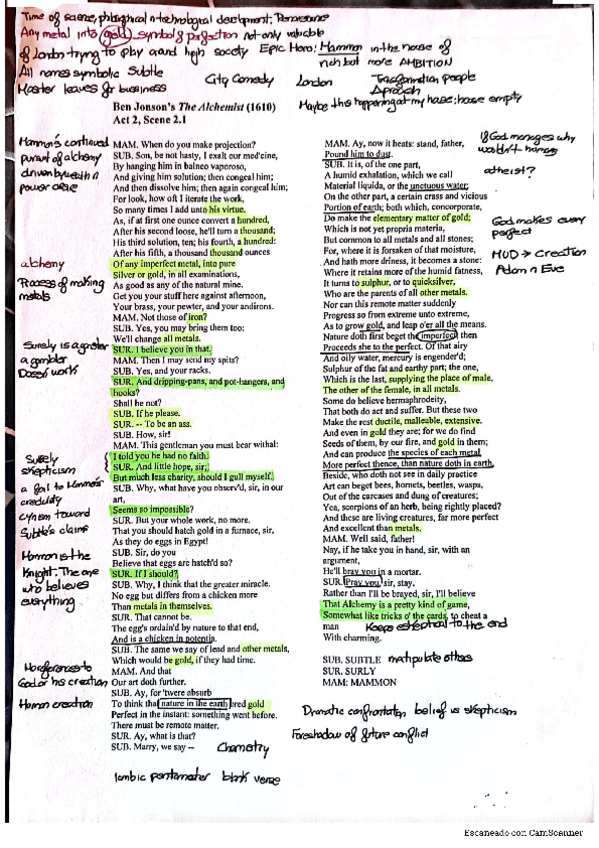 Time of science, philosophical n technological development: Renaissance
Any metal into (gold) symbol of perfection not only valuable
of London trying to play around high society Epic Hero: Mammon in the house of
rich but more AMBITION
All names symbolic Subtle City Comedy London Transformation people
Master leaves for business
Maybe this happening at my house: house empty
Ben Jonson's The Alchemist (1610)
Act 2, Scene 2.1
Mammon's continued
pursuit of alchemy
driven by
power
alchemy
Process of making
metals
Surely is a gambler
a gambler
Doesn't work
Surely
skepticism
a foil to Mammon's
credulity
cynism toward
Subtle's claims
Mammon is the
Knight. The one
who believes
everything
No references to
God or his creation
Human creation
MAM. When do you make projection?
SUB. Son, be not hasty, I exalt our med'cine,
By hanging him in balneo vaporoso,
And giving him solution; then congeal him;
And then dissolve him; then again congeal him;
For look, how oft I iterate the work,
So many times I add unto his virtue.
As, if at first one ounce convert a hundred,
After his second loose, he'll turn a thousand;
His third solution, ten; his fourth, a hundred:
After his fifth, a thousand thousand ounces
Of any imperfect metal, into pure
Silver or gold, in all examinations,
As good as any of the natural mine.
Get you your stuff here against afternoon,
Your brass, your pewter, and your andirons.
MAM. Not those of iron?
SUB. Yes, you may bring them too:
We'll change all metals.
SUR. I believe you in that.
MAM. Then I may send my spits?
SUB. Yes, and your racks.
SUR. And dripping-pans, and pot-hangers, and
hooks?
Shall he not?
SUB. If he please.
SUR. -- To be an ass.
SUB. How, sir!
MAM. This gentleman you must bear withal:
I told you he had no faith.
SUR. And little hope, sir;
But much less charity, should I gull myself.
SUB. Why, what have you observ'd, sir, in our
art,
Seems so impossible?
SUR. But your whole work, no more.
That you should hatch gold in a furnace, sir,
As they do eggs in Egypt!
SUB. Sir, do you
Believe that eggs are hatch'd so?
SUR. If I should?
SUB. Why, I think that the greater miracle.
No egg but differs from a chicken more
Than metals in themselves.
SUR. That cannot be.
The egg's ordain'd by nature to that end,
And is a chicken in potentia.
SUB. The same we say of lead and other metals,
Which would be gold, if they had time.
MAM. And that
Our art doth further.
SUB. Ay, for 'twere absurb
To think that nature in the earth bred gold
Perfect in the instant: something went before.
There must be remote matter.
SUR. Ay, what is that?
SUB. Marry, we say --
Chemistry
Iambic pentameter blank verse
MAM. Ay, now it heats: stand, father,
Pound him to dust.
SUB. It is, of the one part,
A humid exhalation, which we call
Material liquida, or the unctuous water;
On the other part, a certain crass and vicious
Portion of earth; both which, concorporate,
Do make the elementary matter of gold;
Which is not yet propria materia,
But common to all metals and all stones;
For, where it is forsaken of that moisture,
And hath more driness, it becomes a stone:
Where it retains more of the humid fatness,
It turns to sulphur, or to quicksilver,
Who are the parents of all other metals.
Nor can this remote matter suddenly
Progress so from extreme unto extreme,
As to grow gold, and leap o'er all the means.
Nature doth first beget the imperfect, then
Proceeds she to the perfect. Of that airy
And oily water, mercury is engender'd;
Sulphur of the fat and earthy part; the one,
Which is the last, supplying the place of male,
The other of the female, in all metals.
Some do believe hermaphrodeity,
That both do act and suffer. But these two
Make the rest ductile, malleable, extensive.
And even in gold they are; for we do find
Seeds of them, by our fire, and gold in them;
And can produce the species of each metal
More perfect thence, than nature doth in earth.
Beside, who doth not see in daily practice
Art can beget bees, hornets, beetles, wasps,
Out of the carcases and dung of creatures;
Yea, scorpions of an herb, being rightly placed?
And these are living creatures, far more perfect
And excellent than metals.
MAM. Well said, father!
Nay, if he take you in hand, sir, with an
argument,
He'll bray you in a mortar.
SUR. Pray you, sir, stay.
Rather than I'll be brayed, sir, I'll believe
That Alchemy is a pretty kind of game,
Somewhat like tricks o' the cards, to cheat a
man
With charming.
Keeps eskeptical to the end
SUB. SUBTLE manipulate others
SUR. SURLY
MAM: MAMMON
If God manages why
wouldn't humans
atheist?
God makes every
perfect
MUD → creation
Adam n Eve
Dramatic confrontation, belief vs skepticism
Foreshadow of future conflict
Escaneado con CamScanner